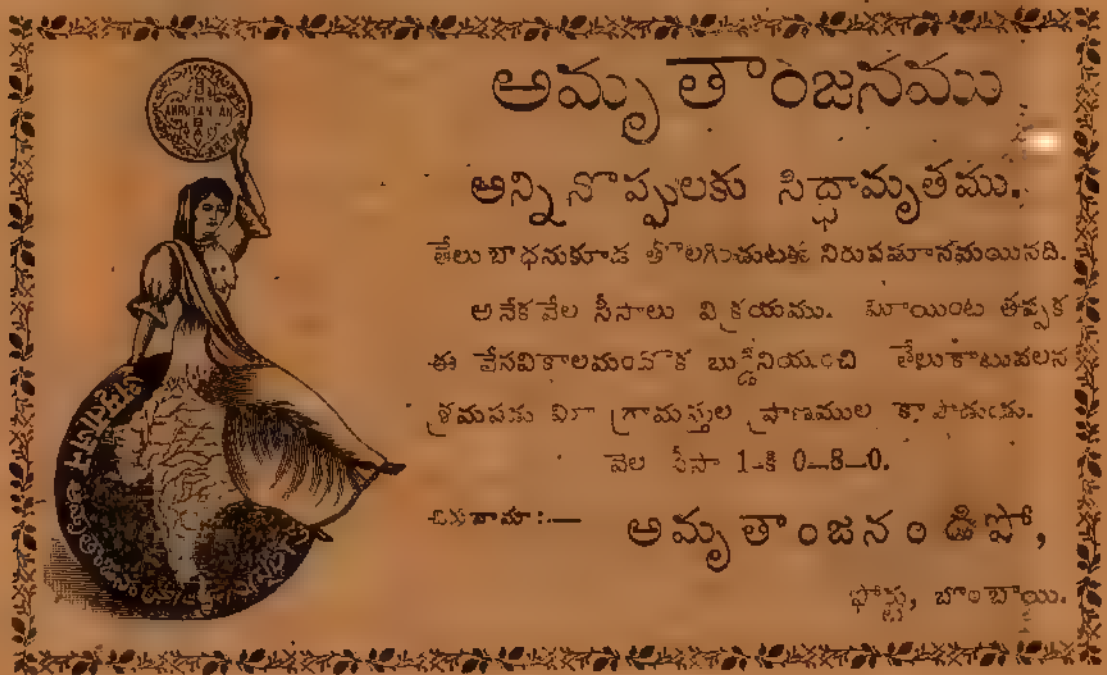 AMRUTANJAN
అమృతాంజనము
అన్ని నొప్పులకు సిద్ధామృతము.
తేలు బాధనుకూడ తొలగించుటకు నిరుపమానమయినది.
అనేక వేల సీసాలు విక్రయము. మాయింట తప్పక
ఈ బుడ్డినియుంచి తేలుకాటువలన
శ్రమపడు మీ గ్రామస్తుల ప్రాణముల కాపాడుడు.
వెల సీసా 1-కి 0—8—0.
చిరునామా :—
అమృతాంజనం డిపో,
పోస్టు, బొంబాయి.